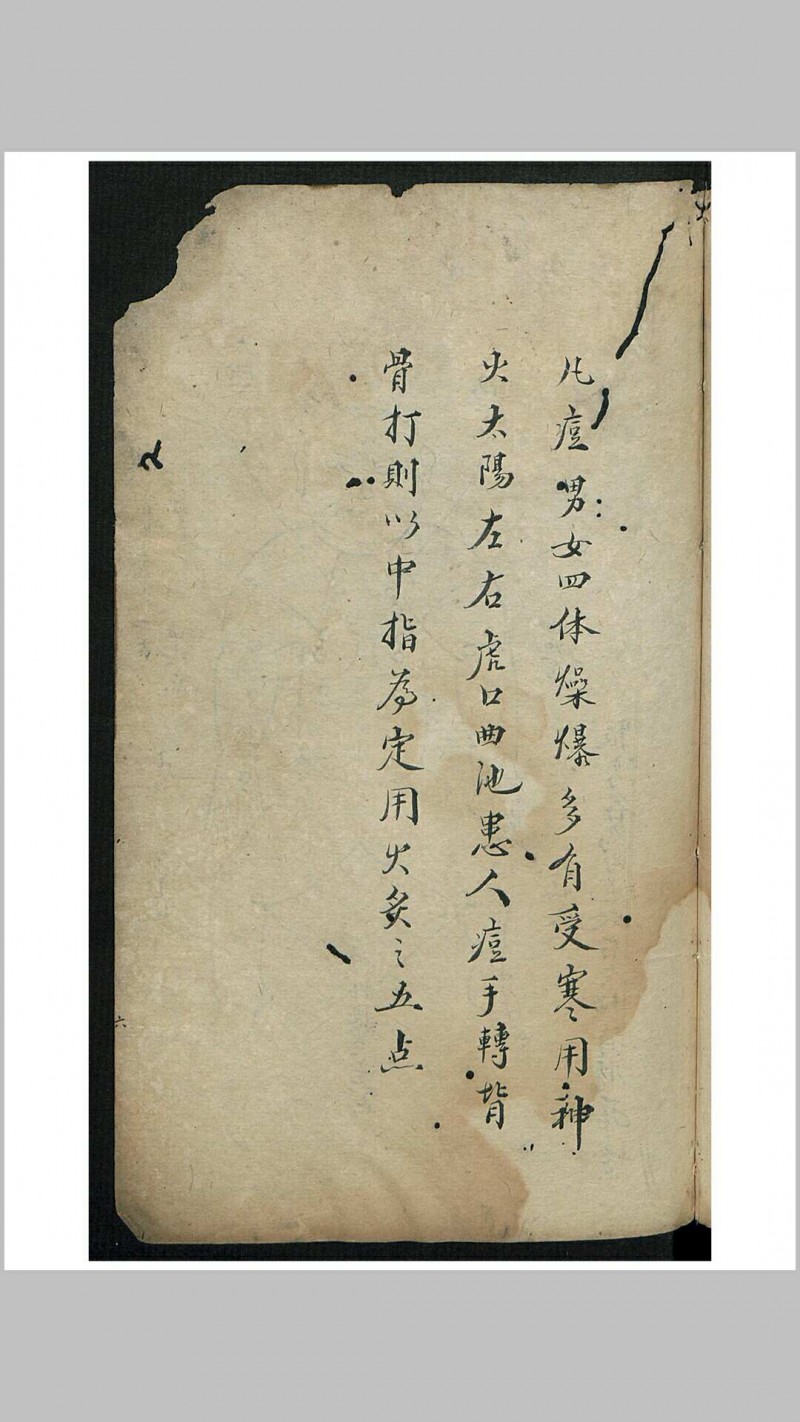 凡痘男女四体燥爆多有受寒用神
火太陽左右虎口曲池患人痘手轉背
骨打則以中指為定用火炙之五点
六